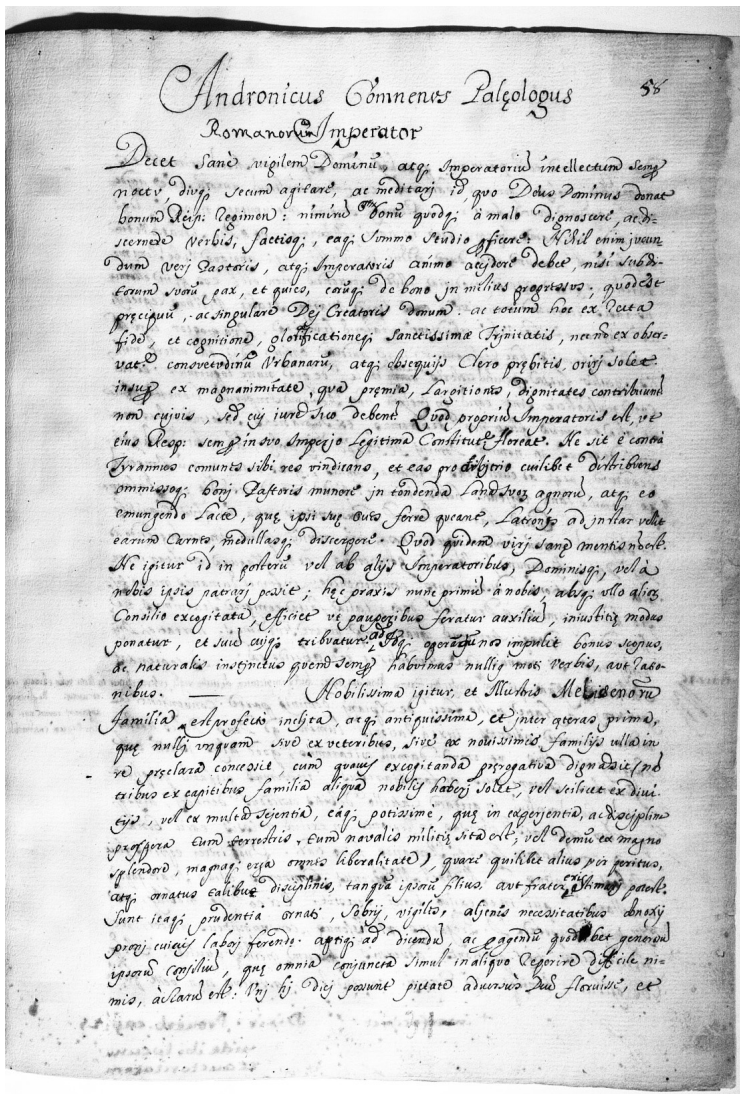 Andronicus Comnenos Palęologus
58
Romanorum Imperator
Decet sanè vigilem Dominũ, atq; Imperatoriũ intellectum semp
noctu, diuq; secum agitare, ac meditarj id, quo Deus Dominus donat
bonum Reip: regimen: nimirũ bonũ quodq; à malo dignoscere, ac di=
scernere verbis, factisq;, eaq; summo studio pficere: Nihil enim jucun
dum verj Pastoris, atq; Imperatoris animo accjdere debet, nisi subdi=
torum suorũ pax, et quies, eorũq; de bono jn melius progressus; quod est
pręcipuũ, ac singulare Dej Creatoris donum: ac totum hoc ex recta
fide, et cognicione, glorificationeq; Sanctissimæ Trjnitatis, necnõ ex obser=
vat: consvetudinũ Vrbanarũ, atq; obsequijs Clero prębitis, orirj solet:
insup ex magnanimitate, qua pręmia, Largitiones, dignitates contribuunt
non cujvis, sed cuj iure suo debent. Quod propriũ Imperatoris est, vt
eius Resp: semp in suo Imperjo Legitimè Constituta floreat. Ne sit è contrà
Tyrannus comunes sibi res vindicans, et eas pro arbitrio cuilibet distribuens
ommissoq; bonj Pastoris munere jn tondenda Lana suoꝝ agnorũ, atq; eo
emungendo Lacte, quę ipsi suę oues ferre queant, Latronis ad jnstar velit
earum Carnes, medullasq; discerpere. Quod quidem virj sanę mentis nõ est.
Ne igitur id in posterũ vel ab alijs Imperatoribus, Dominisq;, vel à
nobis ipsis patrarj possit; hęc praxis nunc primũ à nobis, absq; ullo alioꝝ
Consilio excogitata, efficiet vt pauperibus feratur auxiliũ, iniustitię modus
ponatur, et suũ cuiq; tribuatur: ad nos impulit bonus scopus,
&c naturalis instinctus quem semp habuimus nullis moti verbis, aut ratio=
nibus. — Nobilissima igitur, et Illustris Melissenorũ
familia est profectò inclita, atq; antiquissima, et inter cęteras prima,
quę nullj vnquam sive ex veteribus, sive ex nouissimis familijs ulla in
re pręclara concessit, cùm quauis excogitanda pręrogatiua digna sit (nã
tribus ex capitibus familia aliqua nobilis haberj solet, vel scilicet ex divi
tijs, vel ex multa scjentia, eaq; potissimè, quę in experjentia, ac discjplina
prospera tum terrestris, tum navalis militię sita est; vel demũ ex magno
splendore, magnaq; erga omnes liberalitate), quare quilibet alius vir peritus,
atq; ornatus talibus disciplinis, tanquã ipsorũ filius, aut frater potest.
Sunt itaq; prudentia ornati, sobrij, vigiles, aljenis necessitatibus obnoxij
pronj cuiuis laborj ferendo. aptiq; ad dicendũ, ac pagendũ quodlibet generosũ
ipsorũ consiliũ, quę omnia conjuncta simul in aliquo reperire difficile ni=
mis, ac rarũ est: Vnj hj dicj possunt pietate adversus Deũ floruisse, et